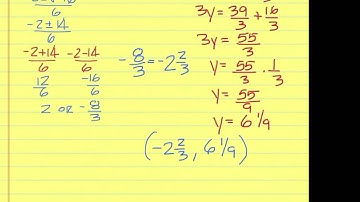 -2±14
6
-2+14 -2-14
6 6
12 -16
6 6
2 or -8/3
-8/3 = -2 2/3
3y = 39/3 + 16/3
3y = 55/3
y = 55/3 · 1/3
y = 55/9
y = 6 1/9
(-2 2/3, 6 1/9)